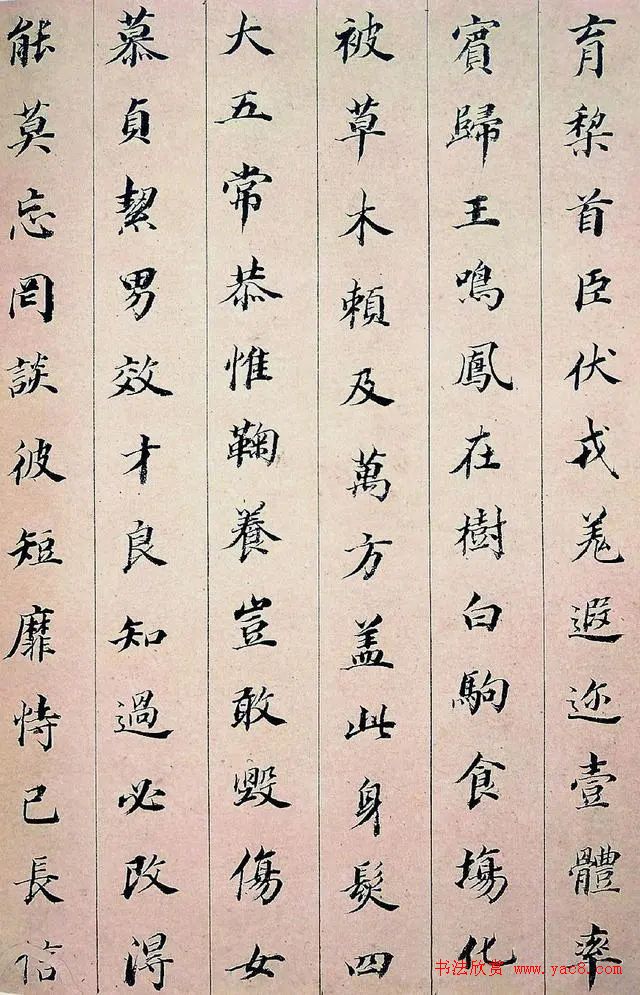 育黎首臣伏戎羌遐迩壹體率
賓歸王鳴鳳在樹白駒食場化
被草木賴及萬方盖此身髮四
大五常恭惟鞠養豈敢毀傷女
慕貞絜男效才良知過必改得
能莫忘罔談彼短靡恃己長信
书法欣赏 www.yac8.com